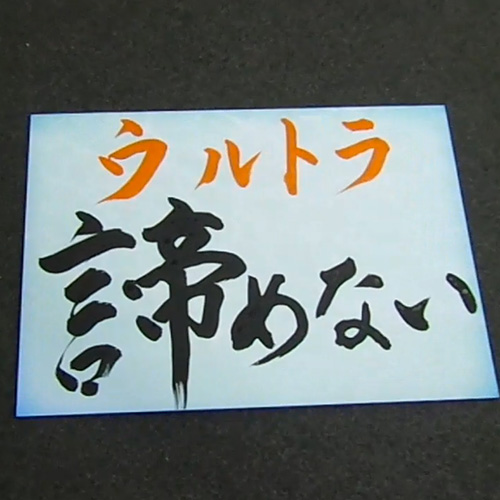 ウルトラ
諦めない